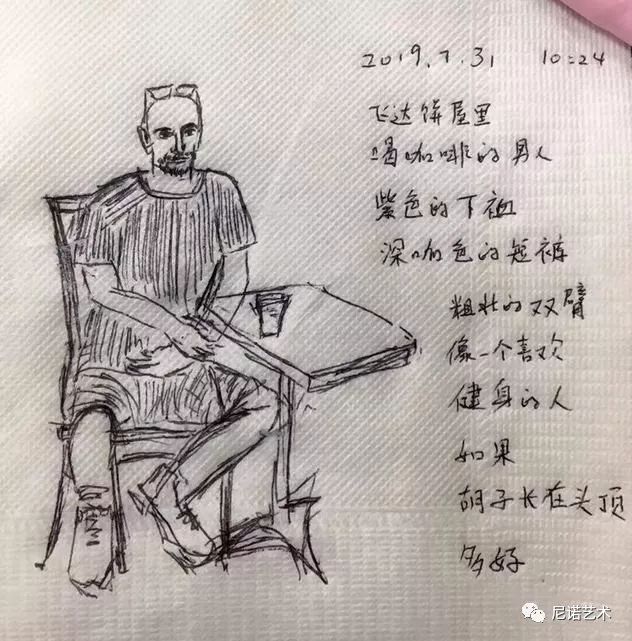 2019.7.31 10:24
飞达饼屋里
喝咖啡的男人
紫色的下裇
深咖色的短裤
粗壮的双臂
像一个喜欢
健身的人
如果
胡子长在头顶
多好
尼诺艺术